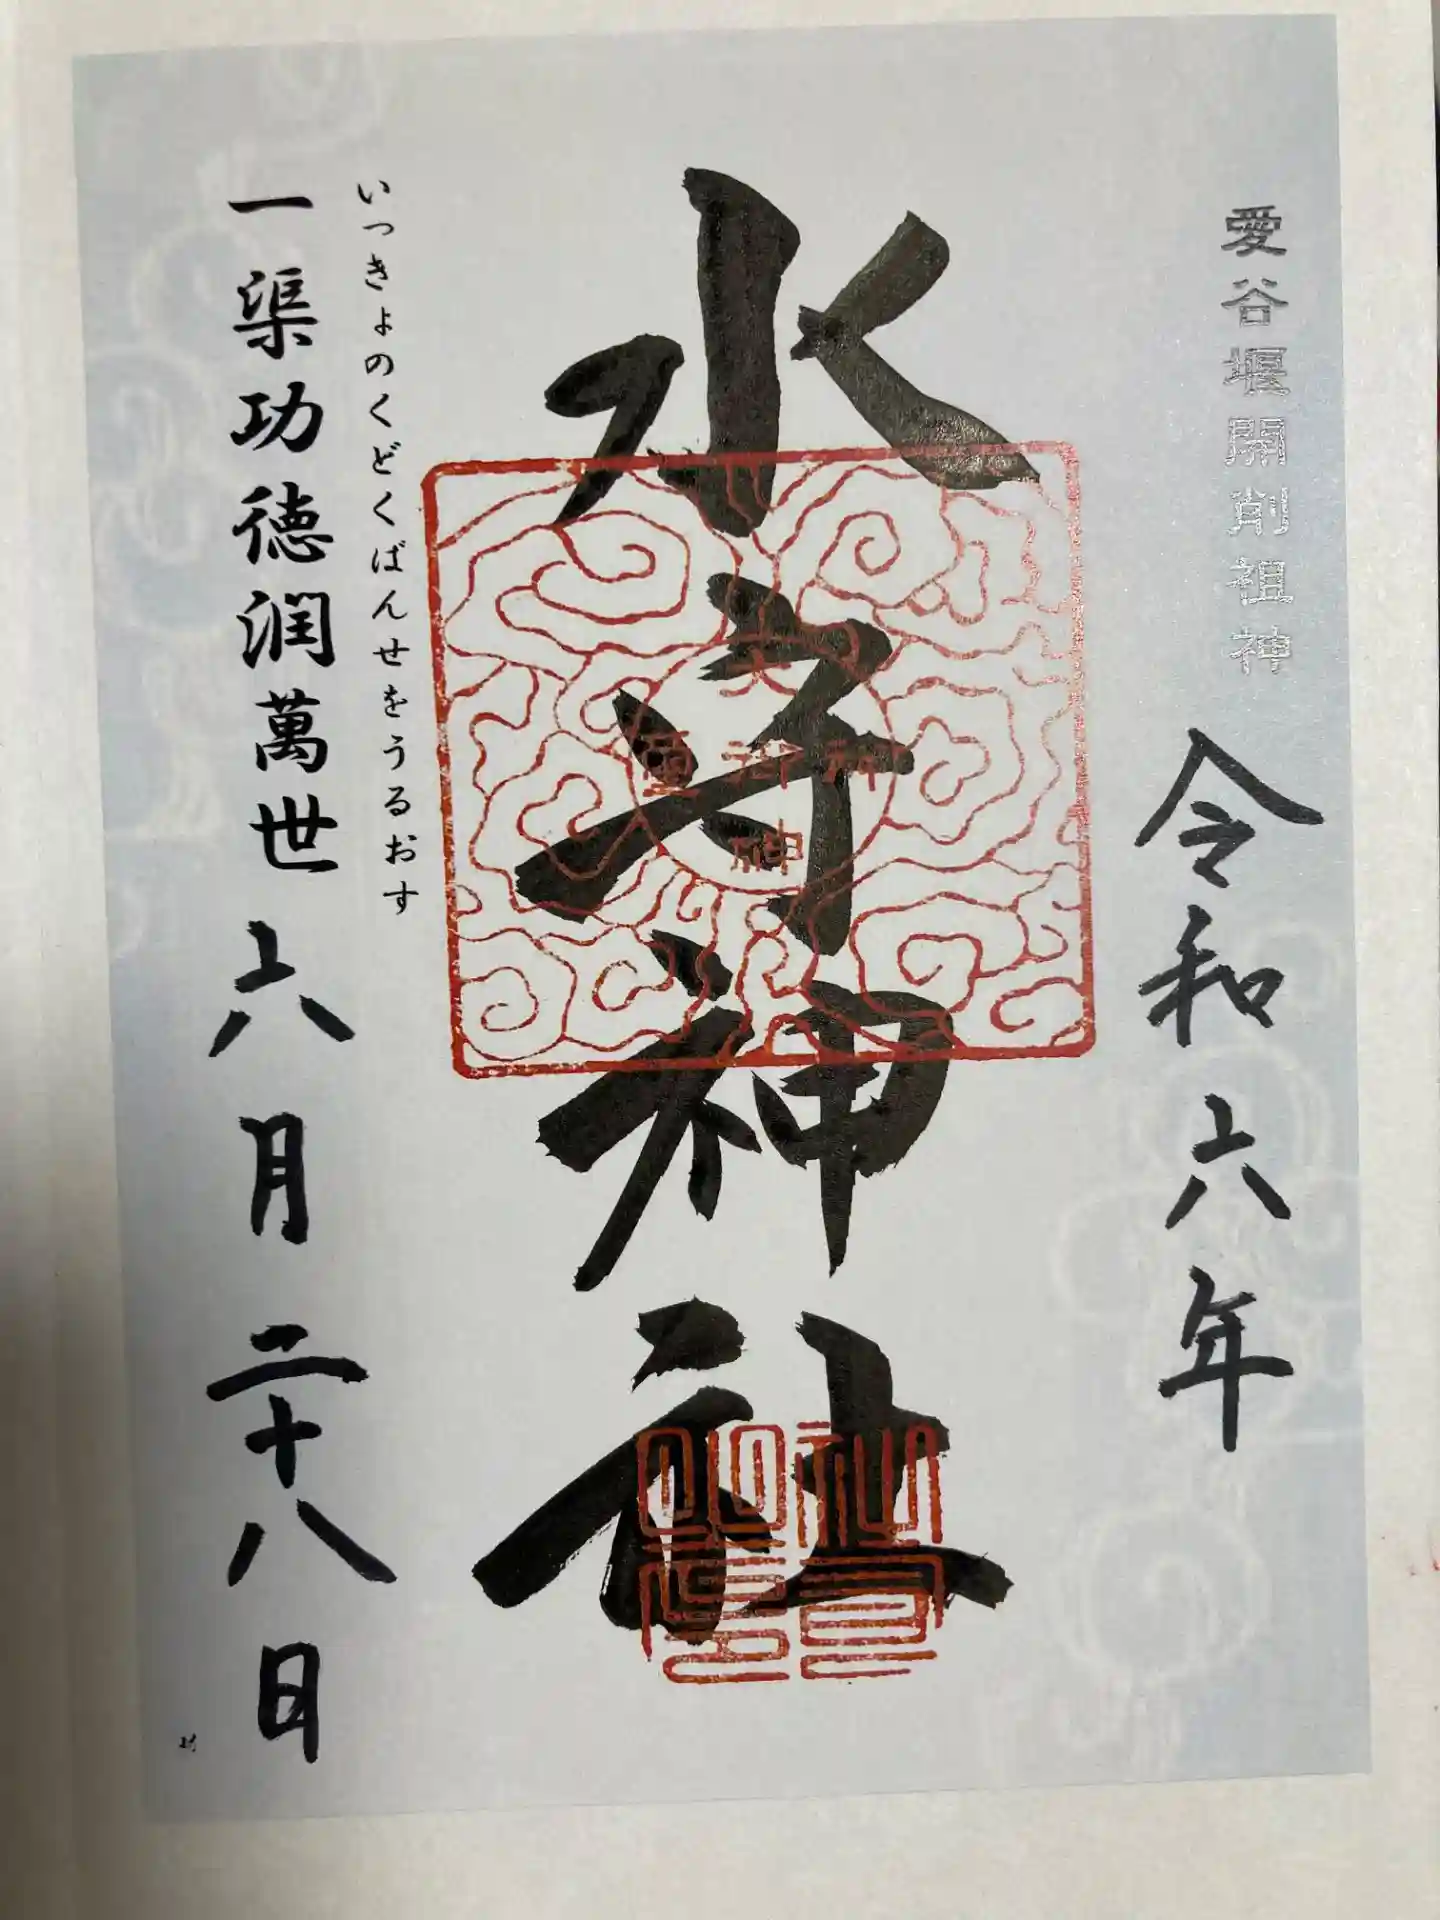 愛谷堰開削祖神
令和六年
水守神社
いっきょのくどくばんせをうるおす
一渠功徳潤萬世
六月二十八日